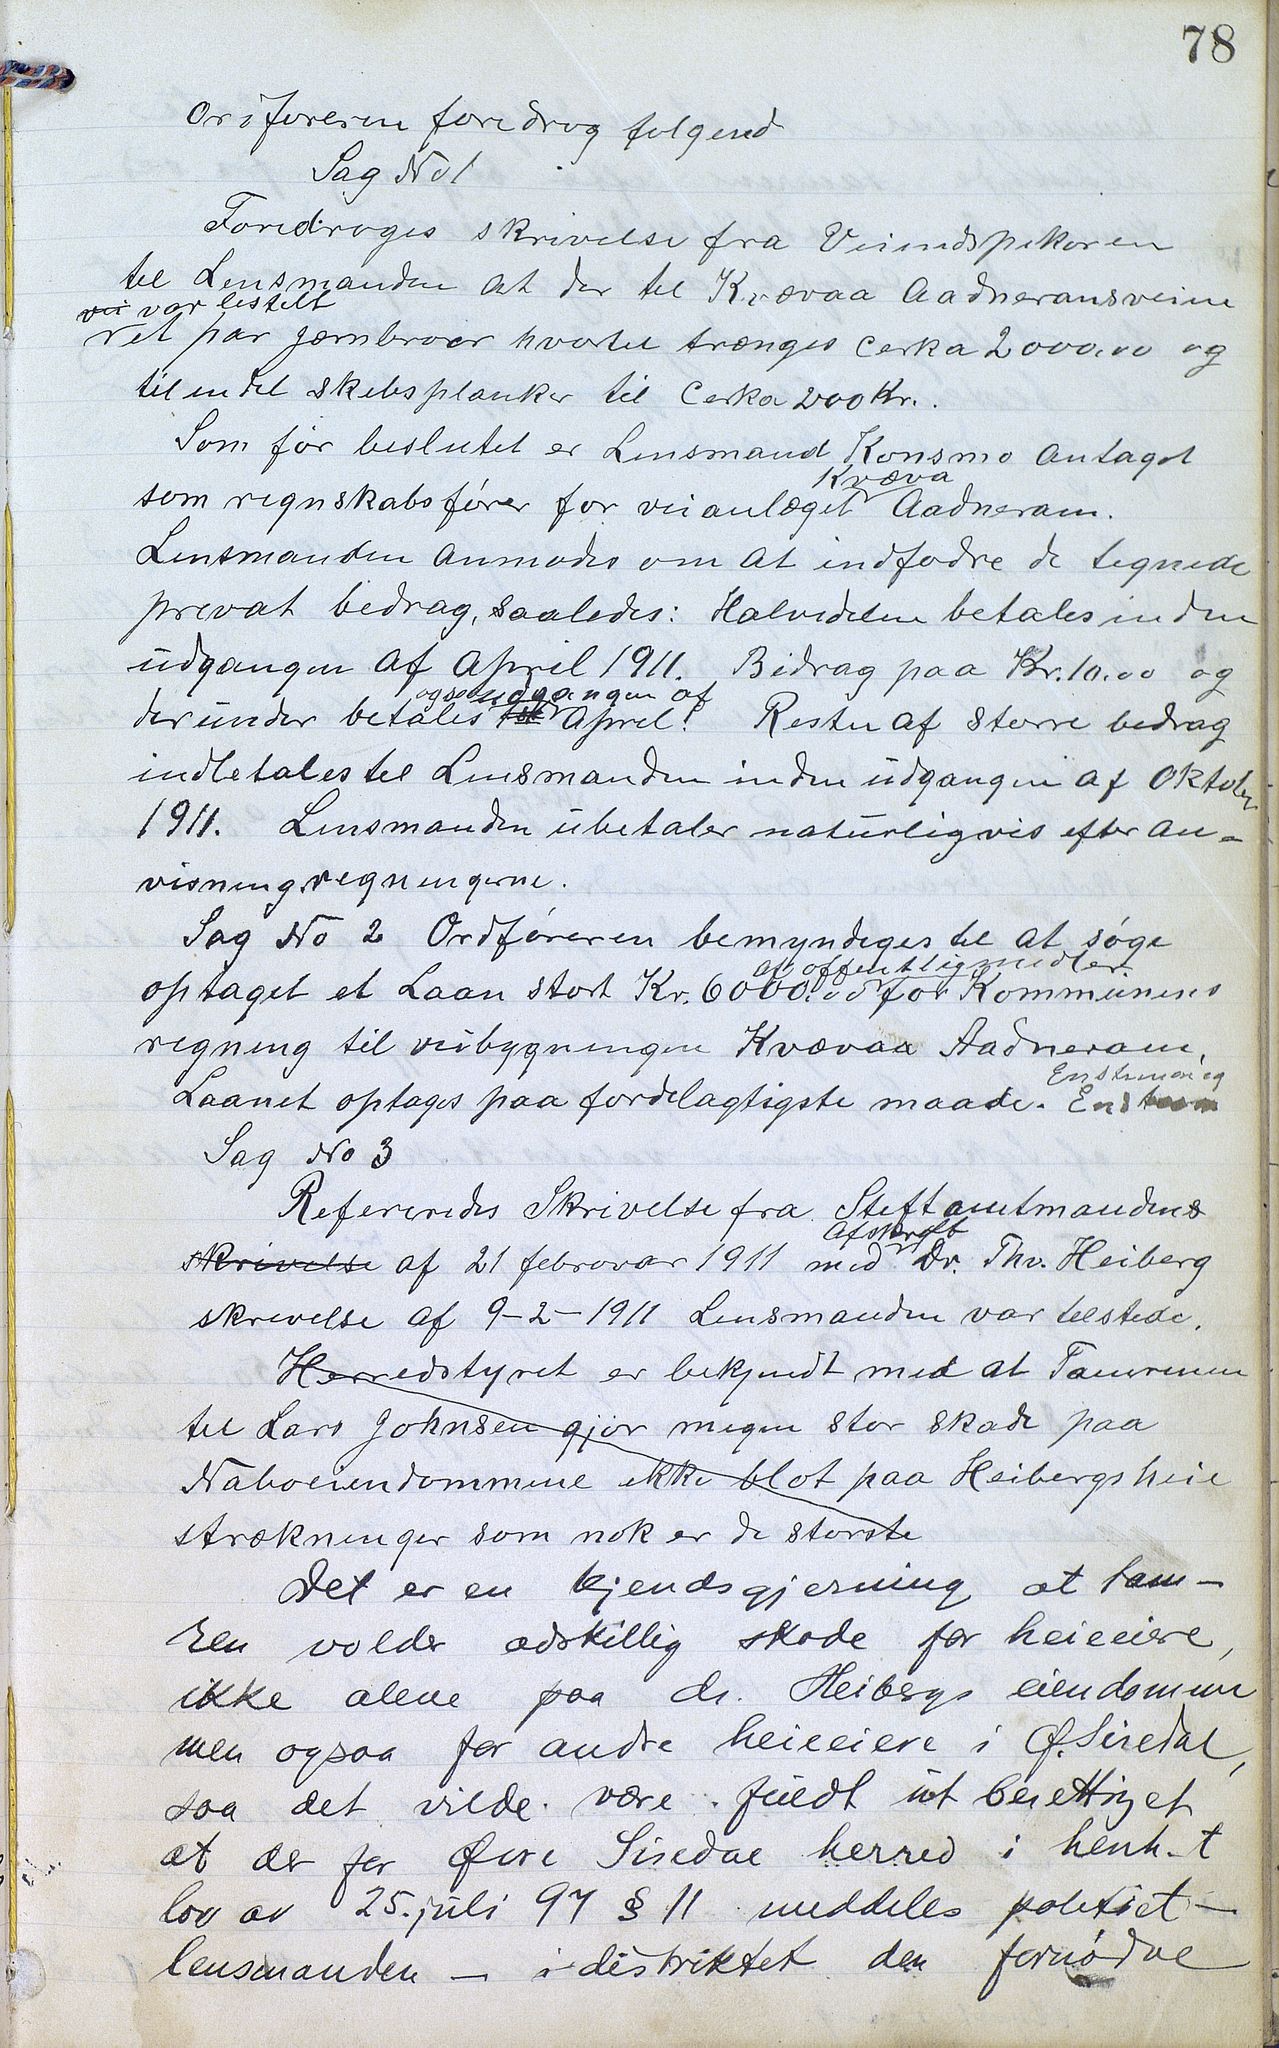 78
Orsføreren foredrog følgend
Sag No 1
Foredroges skrivelse fra Veiindspekøren
til Lensmanden at der til Kvævaa Aadneransveiene
var bestelt
et par jernbroer hvortil trænges cerka 2000.00 og
til endel skibsplanker til Cerka 200 Kr.
Som før beslutet er Lensmand Konsmo antaget
Kvæva
som regnskabsfører for veianlæget Aadneram.
Lensmanden anmodes om at indfodre de tegnede
prevat bedrag, saaledes: Halvedelen betales inden
udgangen af April 1911. Bidrag paa Kr. 10.00 og
ogsaa udgangen af
derunder betales April! Resten af større bedrag
indbetales til Lensmanden inden udgangen af Oktober
1911. Lensmanden ubetaler naturligvis efter an-
visning regningerne.
Sag No 2 Ordføreren bemyndiges til at søge
af offentlig midler.
optaget et Laan stort Kr. 6000.00 for Kommunens
regning til veibygningen Kvævaa Aadneram.
Enstemmig
Laanet optages paa fordelagtigste maade.
Sag No 3
Refereredes Skrivelse fra Stiftamtmanden
Afskrift
skrivelse af 21 februar 1911 med Dr. Thv. Heiberg
skrevelse af 9-2-1911 Lensmanden var tilstede.
Herredstyret er bekjendt med at Tamrenen
til Lars Johnsen gjør megen stor skade paa
Naboeiendommene ikke blot paa Heibergs heie
strækninger som nok er de største
Det er en kjendsgjerning at tam-
ren volder adskillig skade for heieeiere,
ikke alene paa dr. Heibergs eiendomme
men ogsaa for andre heieeiere i Ø. Siredal,
saa det vilde være fuldt ut berettiget
at der for Øvre Siredal herred i henh. t
lov av 25. juli 97 § 11 meddeles politiet -
lensmanden - i distriktet den fornødne